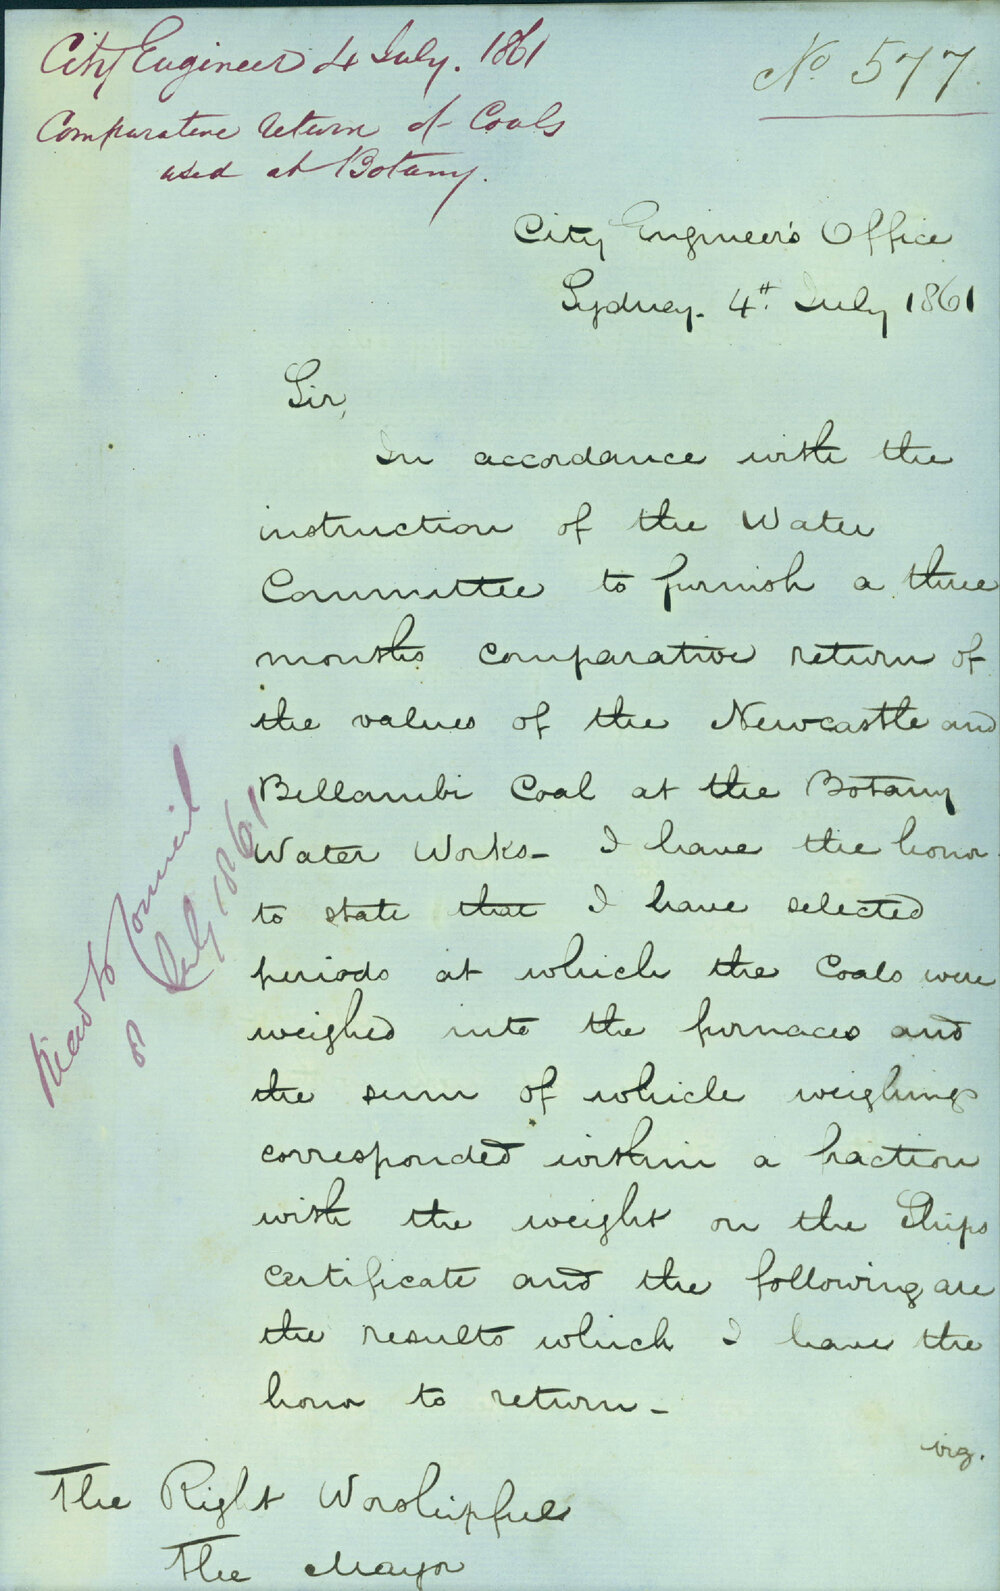 City Engineer 4 July. 1861
Comparative return of Coals
used at Botany.
No 577.
City Engineer's Office
Sydney. 4th July 1861
Sir,
In accordance with the
instruction of the Water
Committee to furnish a three
months comparative return of
the values of the Newcastle and
Bellambi Coal at the Botany
Water Works - I have the honor
to state that I have selected
periods at which the Coals were
weighed into the furnaces and
the sum of which weighings
corresponded within a fraction
with the weight on the Ships
Certificate and the following are
the results which I have the
honor to return -
viz.
The Right Worshipful
The Mayor
Read to Council
8 July 1861